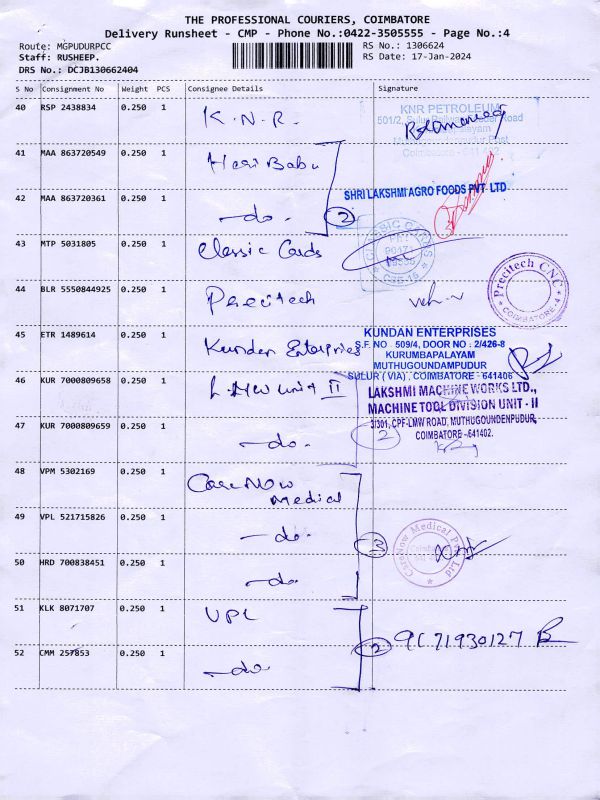 THE PROFESSIONAL COURIERS, COIMBATORE
Delivery Runsheet - CMP - Phone No.:0422-3505555 - Page No.:4
Route: MGPUDURPCC
Staff: RUSHEEP.
DRS No.: DCJB130662404
RS No.: 1306624
RS Date: 17-Jan-2024
S No Consignment No Weight PCS Consignee Details Signature
40 RSP 2438834 0.250 1 K.N.R.
KNR PETROLEUM
41 MAA 863720549 0.250 1 Hari Babu
42 MAA 863720361 0.250 1 -do- 2
SHRI LAKSHMI AGRO FOODS PVT LTD
43 MTP 5031805 0.250 1 Classic Cards
CLASSIC CARDS
44 BLR 5550844925 0.250 1 Precitech
Precitech CNC
COIMBATORE - 4
45 ETR 1489614 0.250 1 Kundan Enterprises
KUNDAN ENTERPRISES
S.F. NO . 509/4, DOOR NO : 2/426-8
KURUMBAPALAYAM
MUTHUGOUNDAMPUDUR
SULUR (VIA) . COIMBATORE - 641406
46 KUR 7000809658 0.250 1 LMW Unit II
LAKSHMI MACHINE WORKS LTD.,
MACHINE TOOL DIVISION UNIT - II
31301, CPF-LMW ROAD, MUTHUGOUNDENPUDUR,
COIMBATORE -641402.
47 KUR 7000809659 0.250 1 -do- 2
48 VPM 5302169 0.250 1 CareNow
Medical
49 VPL 521715826 0.250 1 -do- 3
CareNow Medical
50 HRD 700838451 0.250 1 -do-
51 KLK 8071707 0.250 1 UPL
2 9171930127
52 CMM 257853 0.250 1 -do-